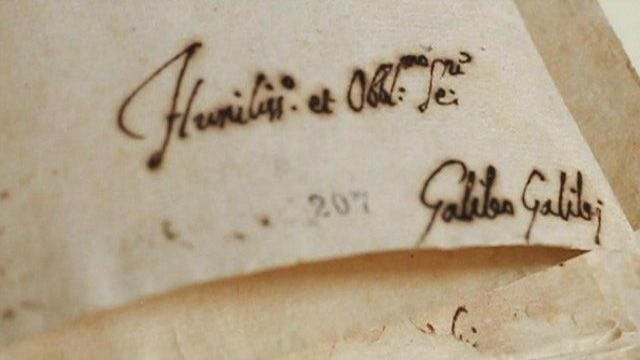 Humiliss.o et Obbl.mo Se.re
207
Galileo Galilei